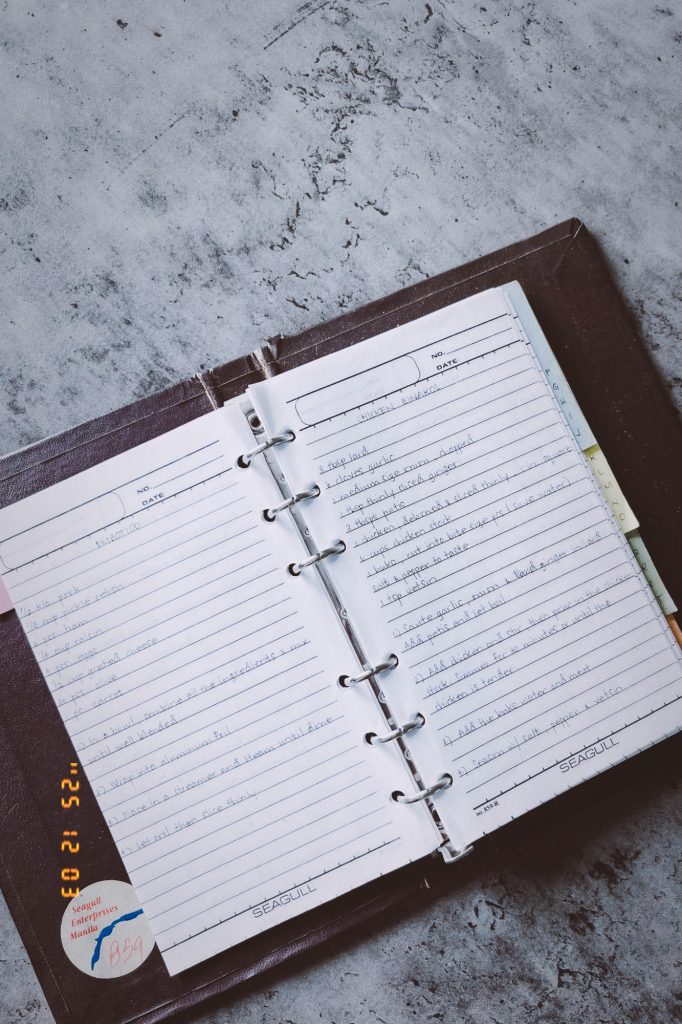 NO.
DATE
EMBOTIDO
1/2 kilo pork
1/2 cup pickle relish
ham
1/4 cup raisin
eggs
1/2 cup grated cheese
olive
pc carrot
1) In a bowl combine all the ingredients & mix
until well blended
2) Wrap into aluminum foil
3) Place in a steamer and steam until done
4) Let cool then slice thinly
SEAGULL
NO.
DATE
CHICKEN BINAKOL
tbsp lard
cloves garlic
1 medium size onion, chopped
1 tbsp thinly sliced ginger
tbsps patis
1 chicken, deboned & sliced thinly, 1 in. square
cups chicken stock
1 buko, cut into bite size pcs (save water)
salt & pepper to taste
1 tsp vetsin
1) Saute garlic, onion & ginger in lard
Add patis and let boil
2) Add chicken and stir, then pour in the chicken
stock. Simmer for minutes or until the
chicken is tender
3) Add the buko water and meat
4) Season w/ salt, pepper & vetsin
SEAGULL
NO. 859-R
Seagull
Enterprises
Manila
859
"25 12 03